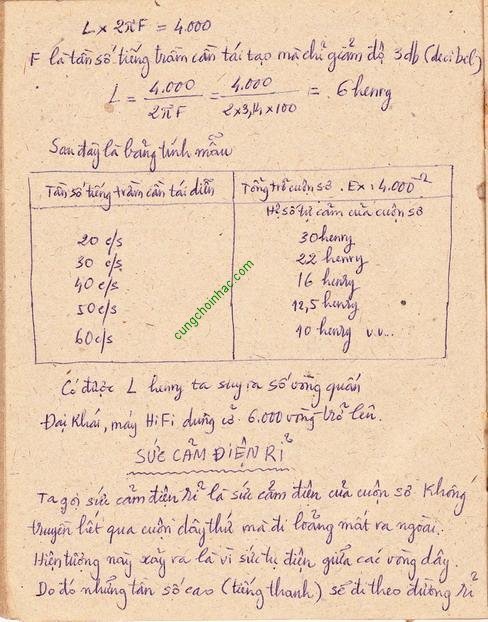 L x 2πF = 4.000
F là tần số tiếng trầm cần tái tạo mà chỉ giảm độ 3db (decibel)
L = 4.000 / 2πF = 4.000 / 2x3,14x100 = 6 henry
Sau đây là bảng tính mẫu
Tần số tiếng trầm cần tái diễn
Tổng trở cuộn sơ. Ex: 4.000 Ω
Hệ số tự cảm của cuộn sơ
20 c/s 30 henry
30 c/s 22 henry
40 c/s 16 henry
50 c/s 12,5 henry
60 c/s 10 henry v.v...
cungchoinhac.com
Có được L henry ta suy ra số vòng quấn
Đại khái, máy HiFi dùng cỡ 6.000 vòng trở lên.
SỨC CẢM ĐIỆN RỈ
Ta gọi sức cảm điện rỉ là sức cảm điện của cuộn sơ không
truyền hết qua cuộn dây thứ mà đi loãng mất ra ngoài.
Hiện tượng này xảy ra là vì sức tụ điện giữa các vòng dây.
Do đó những tần số cao (tiếng thanh) sẽ đi theo đường rỉ